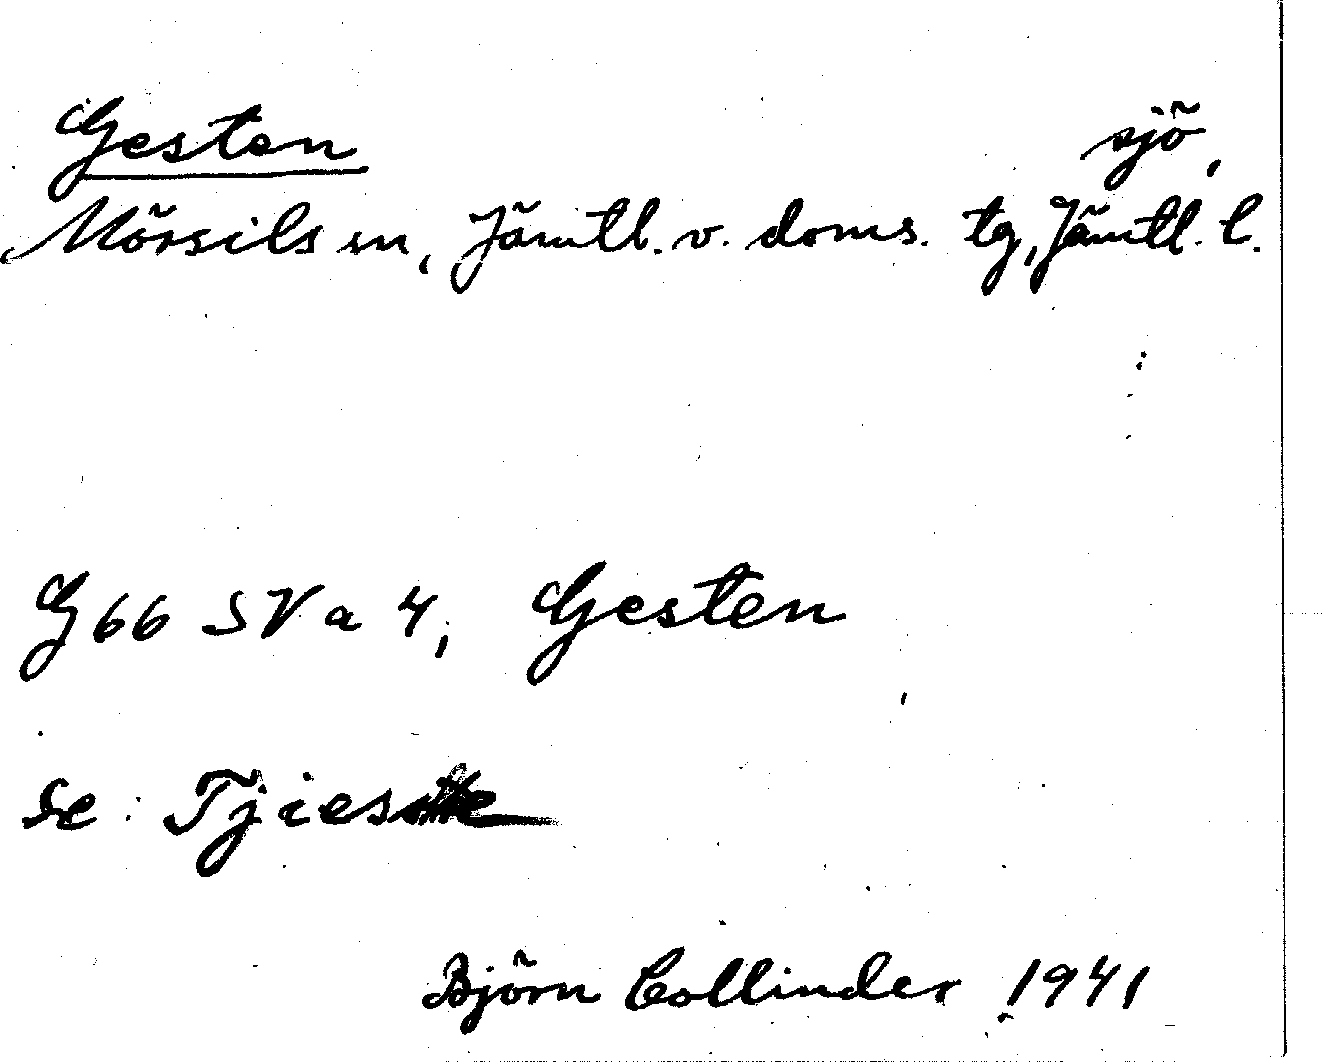 Gesten sjö,
Mörsils sn, Jämtl. v. doms. tg, Jämtl. l.
G 66 SV a 4, Gesten
Se: Tjieste
Björn Collinder 1941